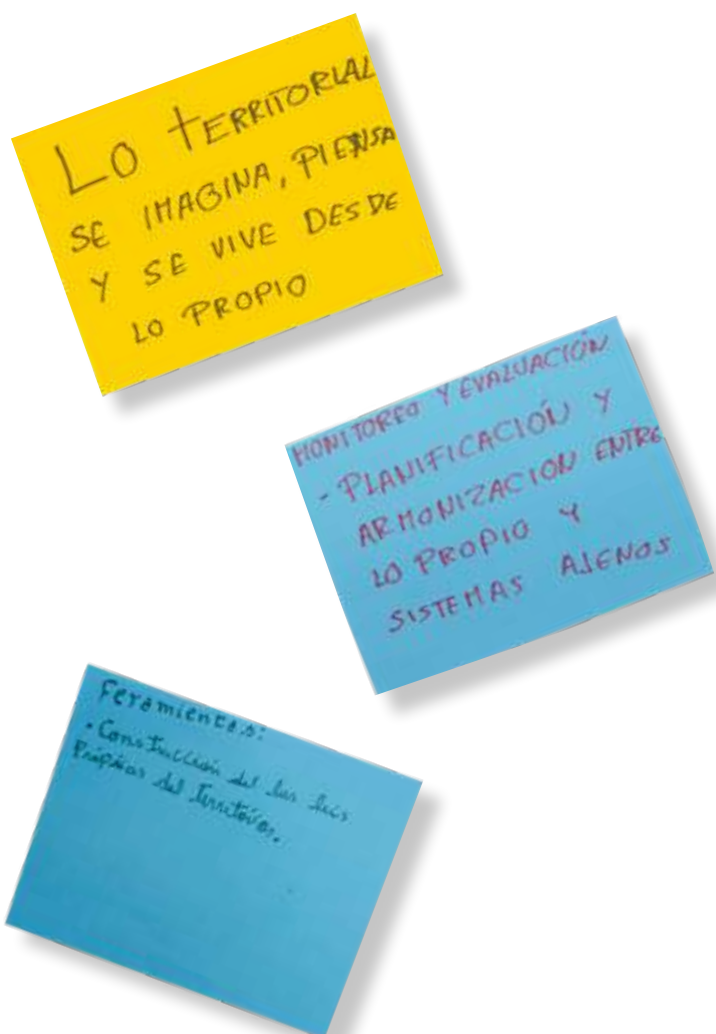 LO TERRITORIAL
SE IMAGINA, PIENSA
Y SE VIVE DESDE
LO PROPIO
MONITOREO Y EVALUACIÓN
- PLANIFICACIÓN Y
ARMONIZACION ENTRE
LO PROPIO Y
SISTEMAS AJENOS
Feramientas:
- Construcción del las
Propias del Territorios.